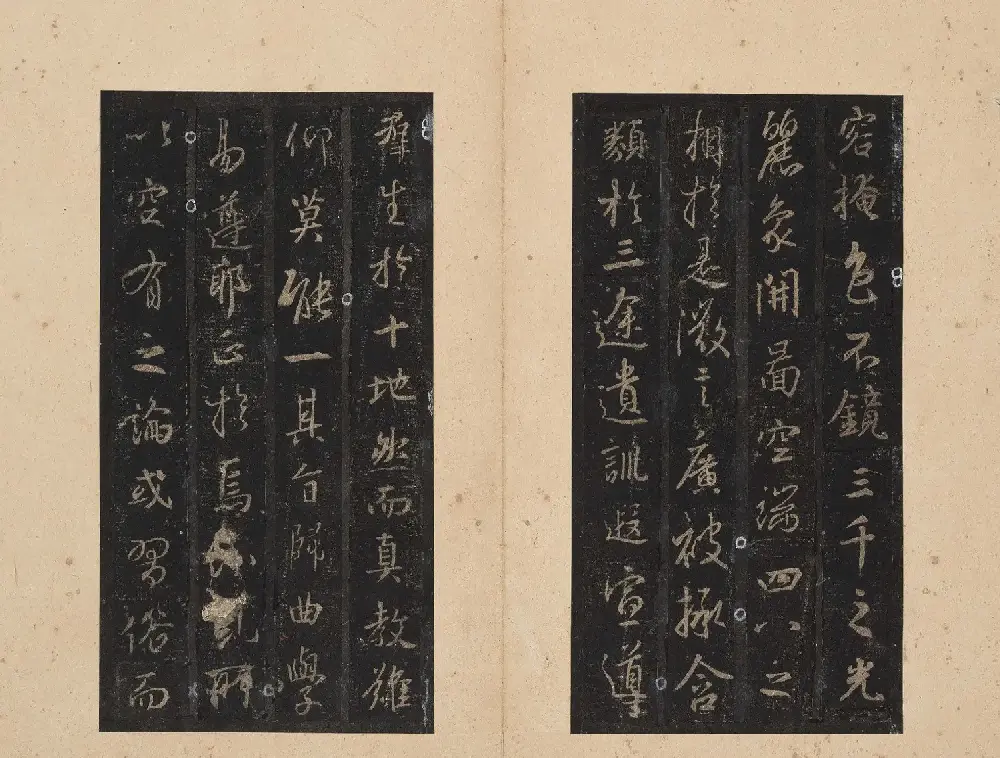 容掩色不鏡三千之光
麗象開圖空端四八之
相於是微言廣被拯含
類於三途遺訓遐宣導
羣生於十地然而真教難
仰莫能一其旨歸曲學
易遵耶正於焉所
以空有之論或習俗而